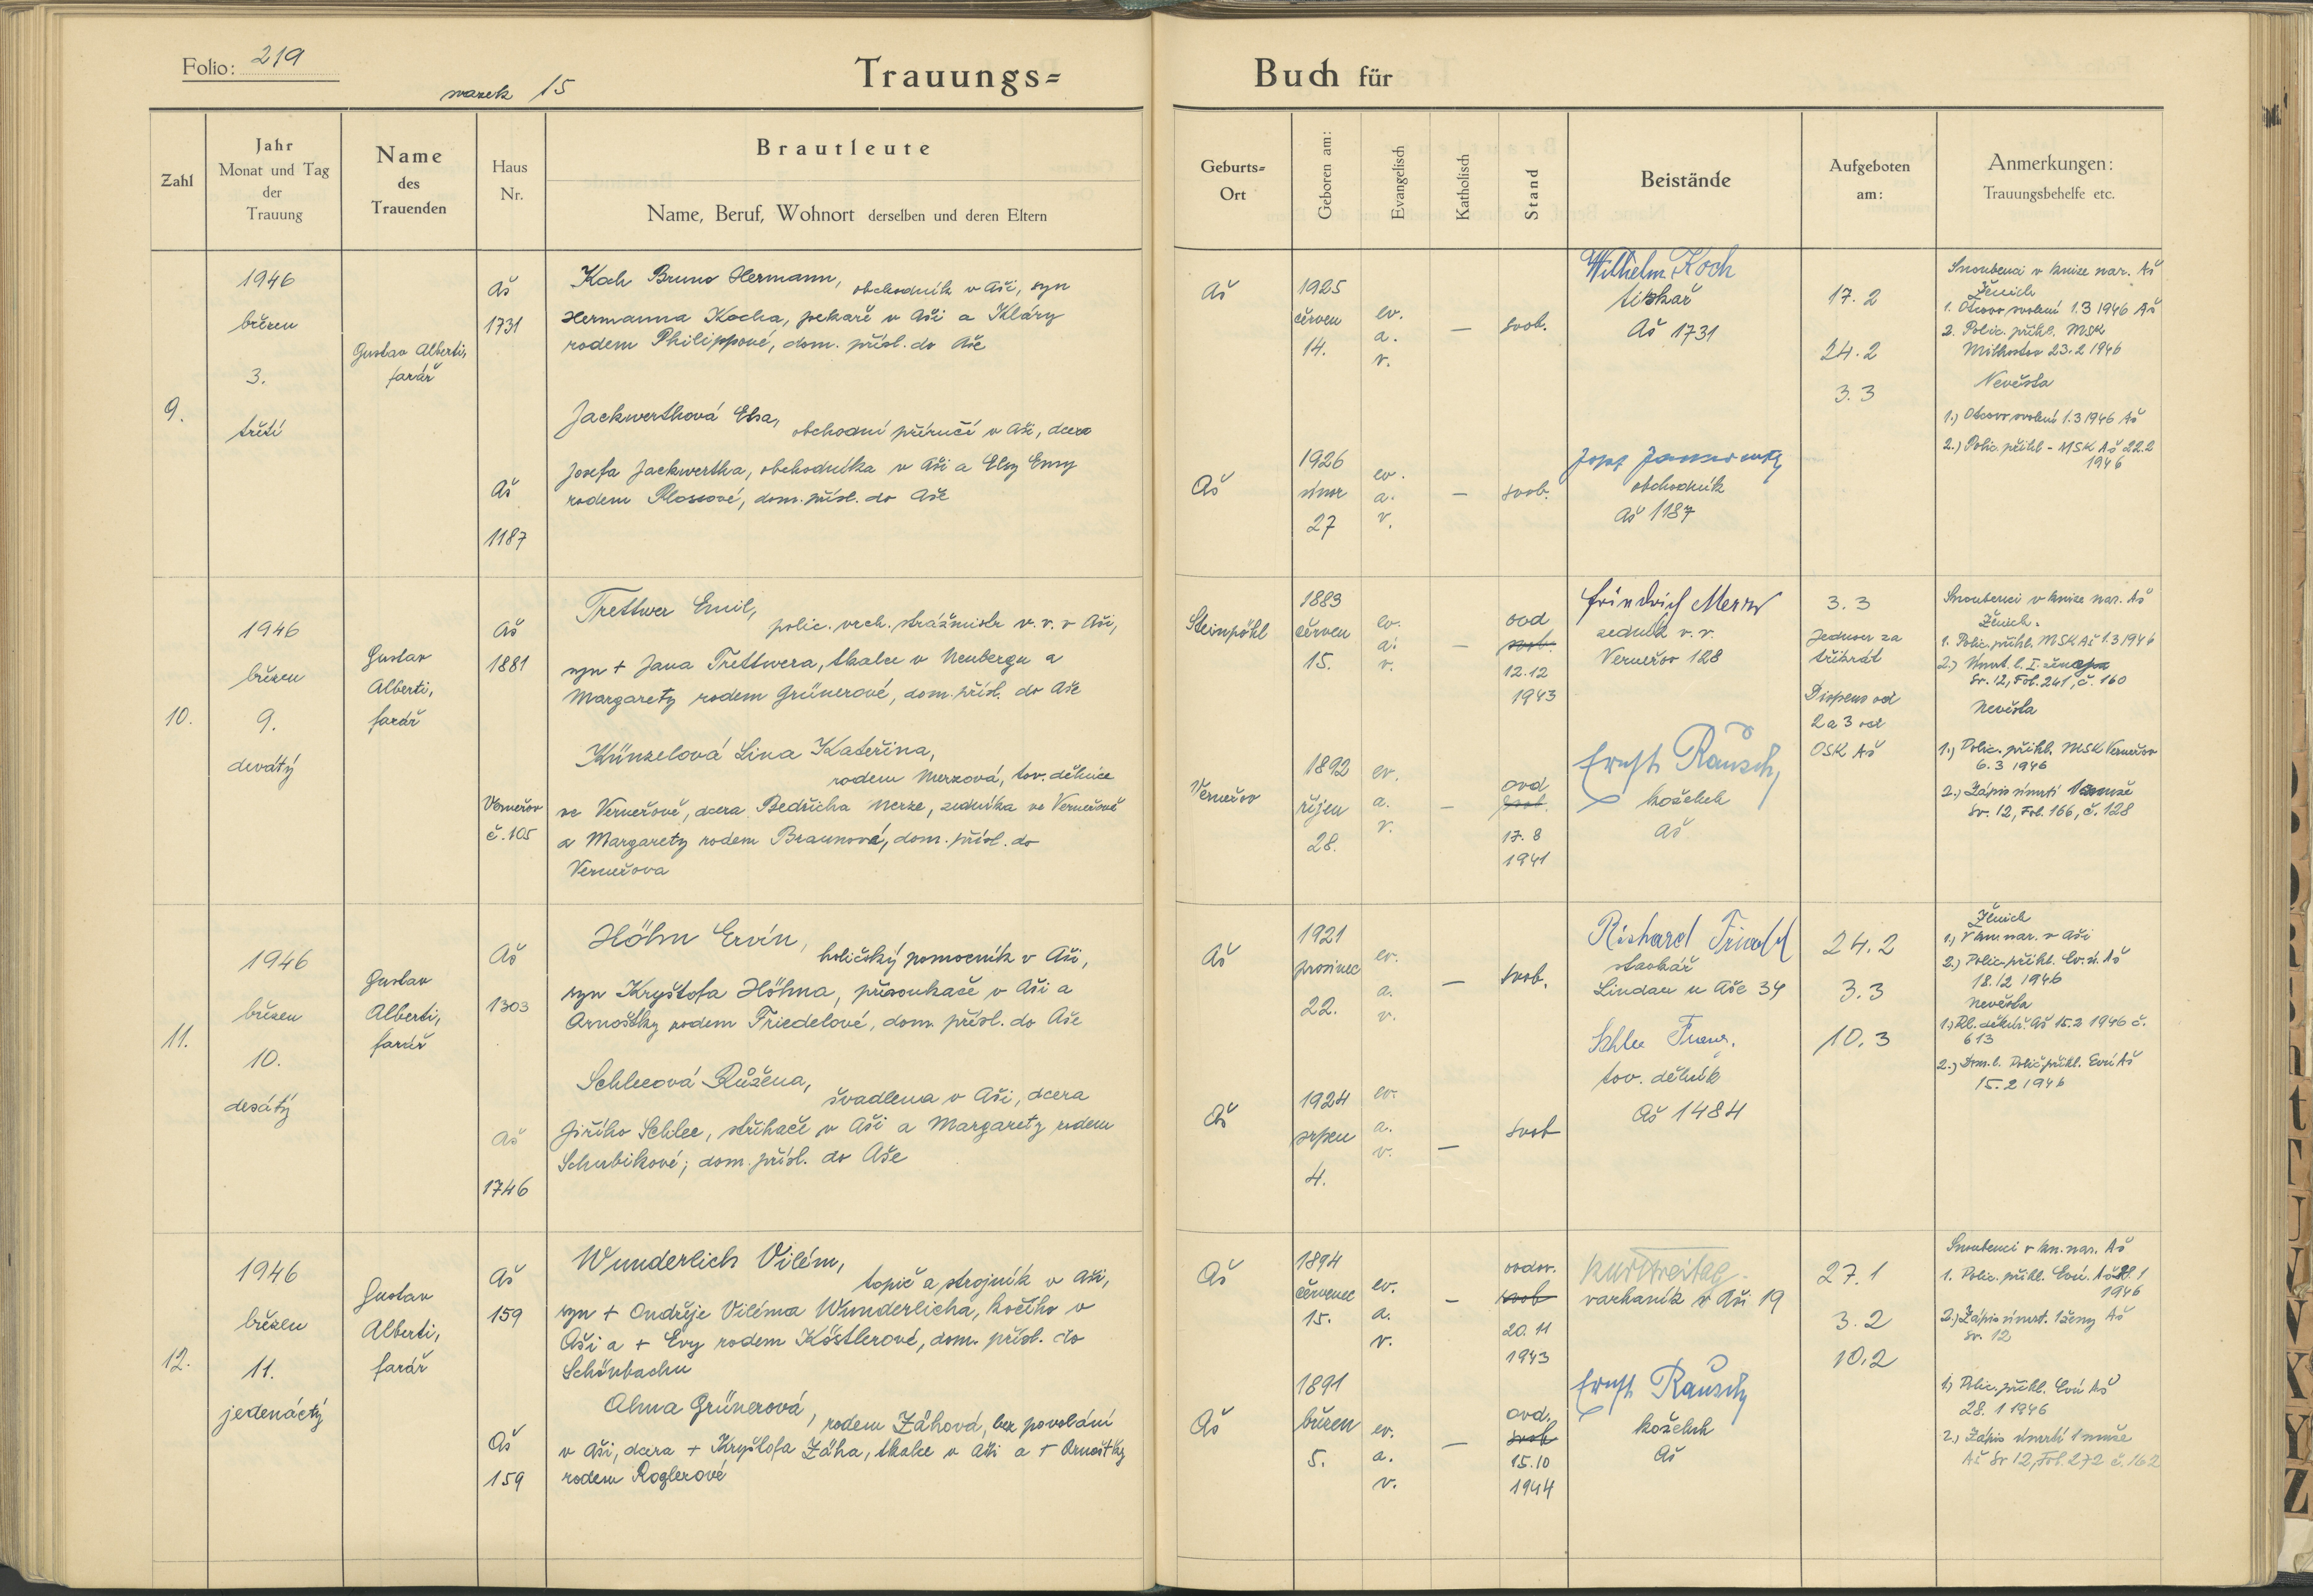 Folio: 219
svazek 15
Trauungs=
Buch für
Zahl
Jahr
Monat und Tag
der
Trauung
Name
des
Trauenden
Haus
Nr.
Brautleute
Name, Beruf, Wohnort derselben und deren Eltern
Geburts=
Ort
Geboren am:
Evangelisch
Katholisch
Stand
Beistände
Aufgeboten
am:
Anmerkungen:
Trauungsbehelfe etc.
9.
1946
březen
3.
třetí
Gustav Alberti,
farář
Aš
1731
Koch Bruno Hermann, obchodník v Aši, syn
Hermanna Kocha, pekaře v Aši a Kláry
rodem Philippové, dom. přísl. do Aše
Aš
1187
Jackwerthová Elsa, obchodní příručí v Aši, dcera
Josefa Jackwertha, obchodníka v Aši a Elsy Emy
rodem Plossové, dom. přísl. do Aše
Aš
1925
červen
14.
ev.
a.
v.
—
svob.
Wilhelm Koch
tiskař
Aš 1731
Aš
1926
únor
27
ev.
a.
v.
—
svob.
obchodník
Aš 1187
17. 2
24. 2
3. 3
Snoubenci v knize nar. Aš
Ženich
1. Otcovo svolení 1.3 1946 Aš
2. Polic. přihl. MSK
Milhostov 23.2 1946
Nevěsta
1.) Otcovo svolení 1.3 1946 Aš
2.) Polic. přihl - MSK Aš 22.2
1946
10.
1946
březen
9.
devátý
Gustav
Alberti,
farář
Aš
1881
Trettwer Emil, polic. vrch. strážmistr v. v. v Aši,
syn + Jana Trettwera, tkalce v Neubergu a
Margarety rodem Grünerové, dom. přísl. do Aše
Verneřov
č. 105
Künzelová Lina Kateřina,
rodem Merzová, tov. dělnice
ve Verneřově, dcera Bedřicha Merze, zedníka ve Verneřově
a Margarety rodem Braunové, dom. přísl. do
Verneřova
Steinpöhl
1883
červen
15.
ev.
a.
v.
—
ovd
svob.
12.12
1943
Friedrich Merz
zedník v. v.
Verneřov 128
Verneřov
1892
říjen
28.
ev.
a.
v.
—
ovd
svob.
17. 8
1941
Ernst Rausch
koželuh
Aš
3. 3
Jednou za
třikrát
Dispens od
2 a 3 od
OSK Aš
Snoubenci v knize nar. Aš
Ženich.
1. Polic. přihl. MSK Aš 1.3 1946
2.) Úmrt. l. I.
Sv. 12, Fol. 241, č. 160
Nevěsta
1.) Polic. přihl. MSK Verneřov
6. 3 1946
2.) Zápis úmrtí 1 muže
Sv. 12, Fol. 166, č. 128
11.
1946
březen
10.
desátý
Gustav
Alberti,
farář
Aš
1303
Höhn Ervín, holičský pomocník v Aši,
syn Kryštofa Höhna, přísoukače v Aši a
Arnoštky rodem Friedelové, dom. přísl. do Aše
Aš
1746
Schleeová Růžena,
švadlena v Aši, dcera
Jiřího Schlee, střihače v Aši a Margarety rodem
Schubikové; dom. přísl. do Aše
Aš
1921
prosinec
22.
ev.
a.
v.
—
svob.
Richard Friedel
stavkář
Lindau u Aše 34
Aš
1924
srpen
4.
ev.
a.
v.
—
svob
Schlee Franz.
tov. dělník
Aš 1484
24. 2
3. 3
10. 3
Ženich
1.) V kn. nar. v Aši
2.) Polic. přihl. Ev. ú. Aš
18.12 1946
Nevěsta
1.) Rl. děků. Aš 15.2 1946 č.
613
2.) Dom. l. Polic přihl. Evú Aš
15. 2 1946
12.
1946
březen
11.
jedenáctý
Gustav
Alberti,
farář
Aš
159
Wunderlich Vilém,
topič a strojník v Aši,
syn + Ondřeje Viléma Wunderlicha, kočího v
Aši a + Evy rodem Köstlerové, dom. přísl. do
Schönbachu
Aš
159
Alma Grünerová, rodem Záhová, bez povolání
v Aši, dcera + Kryštofa Záha, tkalce v Aši a + Arnoštky
rodem Roglerové
Aš
1894
červenec
15.
ev.
a.
v.
—
ovdov.
svob
20. 11
1943
varhaník v Aši 19
Aš
1891
březen
5.
ev.
a.
v.
—
ovd.
svob
15.10
1944
Ernst Rausch
koželuh
Aš
27. 1
3. 2
10. 2
Snoubenci v kn. nar. Aš
1. Polic. přihl. Evú. Aš 28. 1
1946
2.) Zápis úmrt. 1 ženy Aš
Sv. 12
1) Polic. přihl. Evú Aš
28. 1 1946
2.) Zápis úmrtí 1 muže
Aš Sv 12, Fol. 272 č. 162